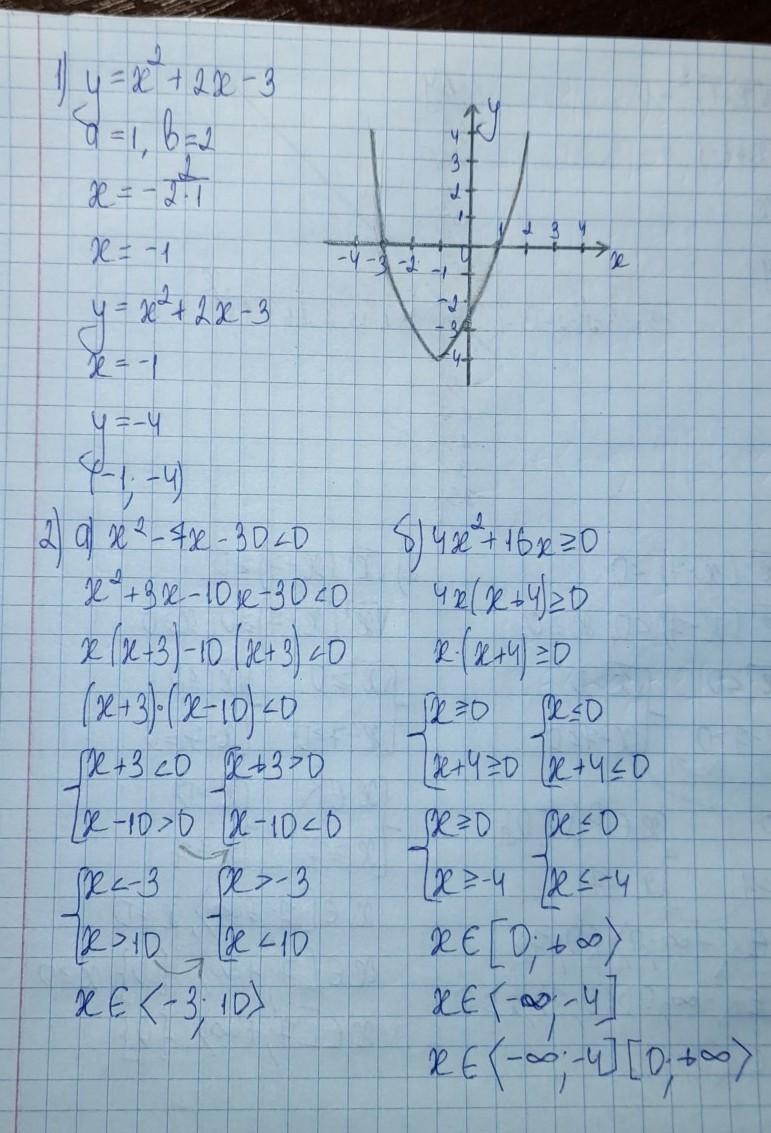 1) y = x² + 2x - 3
a = 1, b = 2
x = - 2/(2·1)
x = -1
y = x² + 2x - 3
x = -1
y = -4
(-1; -4)
y
4
3
2
1
-4 -3 -2 -1 1 2 3 4 x
-2
-3
-4
2) a) x² - 7x - 30 < 0
x² + 3x - 10x - 30 < 0
x(x+3) - 10(x+3) < 0
(x+3)·(x-10) < 0
{x+3<0 {x+3>0
{x-10>0 {x-10<0
{x<-3 {x>-3
{x>10 {x<10
x∈⟨-3; 10⟩
б) 4x² + 16x ≥ 0
4x(x+4) ≥ 0
x·(x+4) ≥ 0
{x≥0 {x≤0
{x+4≥0 {x+4≤0
{x≥0 {x≤0
{x≥-4 {x≤-4
x∈[0; +∞⟩
x∈⟨-∞; -4]
x∈⟨-∞; -4][0; +∞⟩